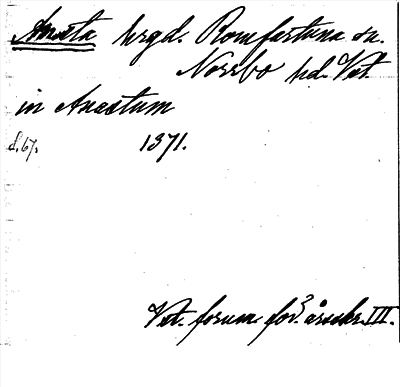 Anesta hrgd. Romfartuna sn.
Norrbo hd. Vstm.
in Anæstum
d. 6/7. 1371.
Vstm. fornm. för:s årsskr. III.